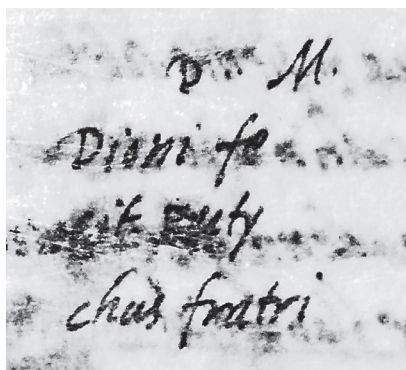 D M.
Dioni fe
cit Euty
chas fratri